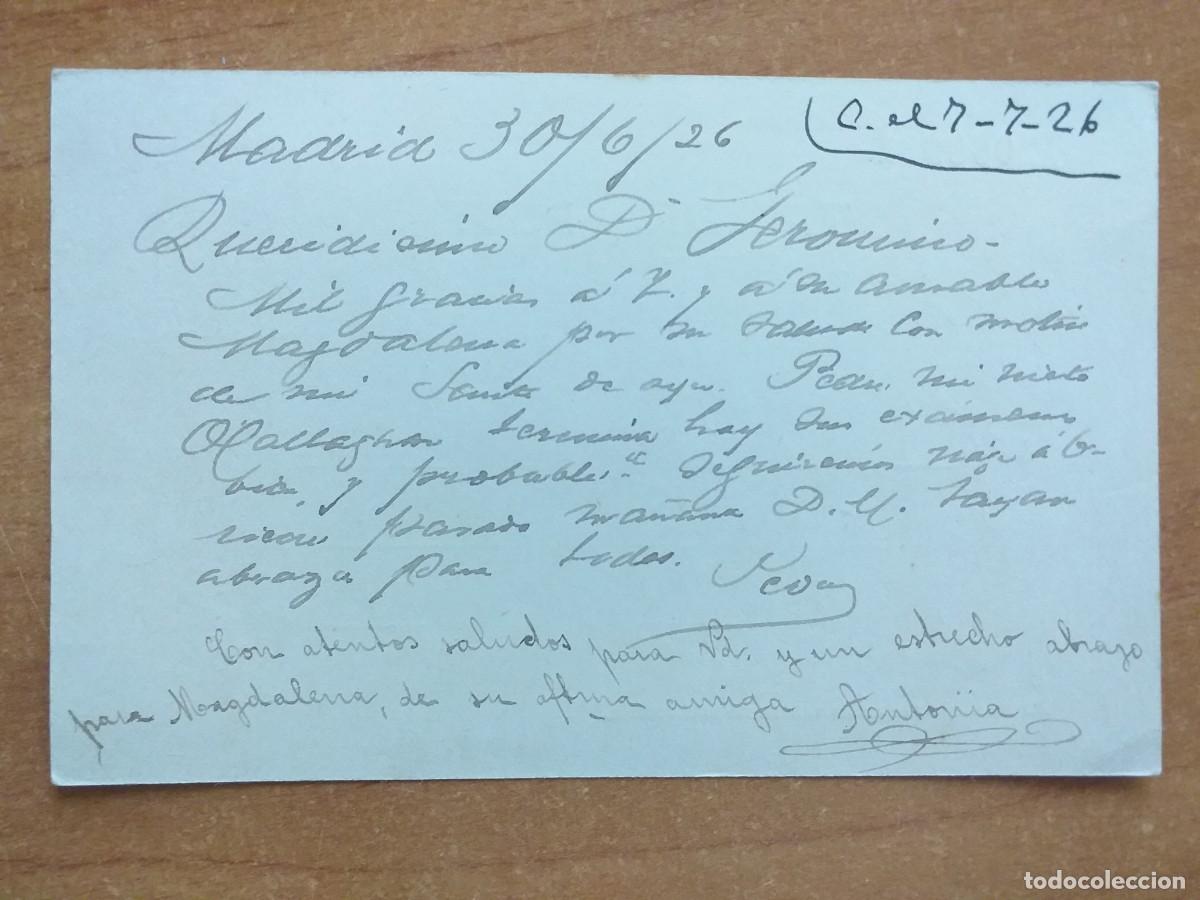 Madrid 30/6/26
C. el 7-7-26
Queridisimo D. Jeronimo-
Mil gracias á V. y á su amable
Magdalena por su saludo con motivo
de mi Santo de ayer. Pedro, mi nieto
O'Callaghan termina hoy sus exámenes
bien, y probable.te seguiremos viaje á
pasado mañana D. M. Vayan
abrazos para todos.
Con atentos saludos para Vd. y un estrecho abrazo
para Magdalena, de su aftma amiga Antonia
todocoleccion